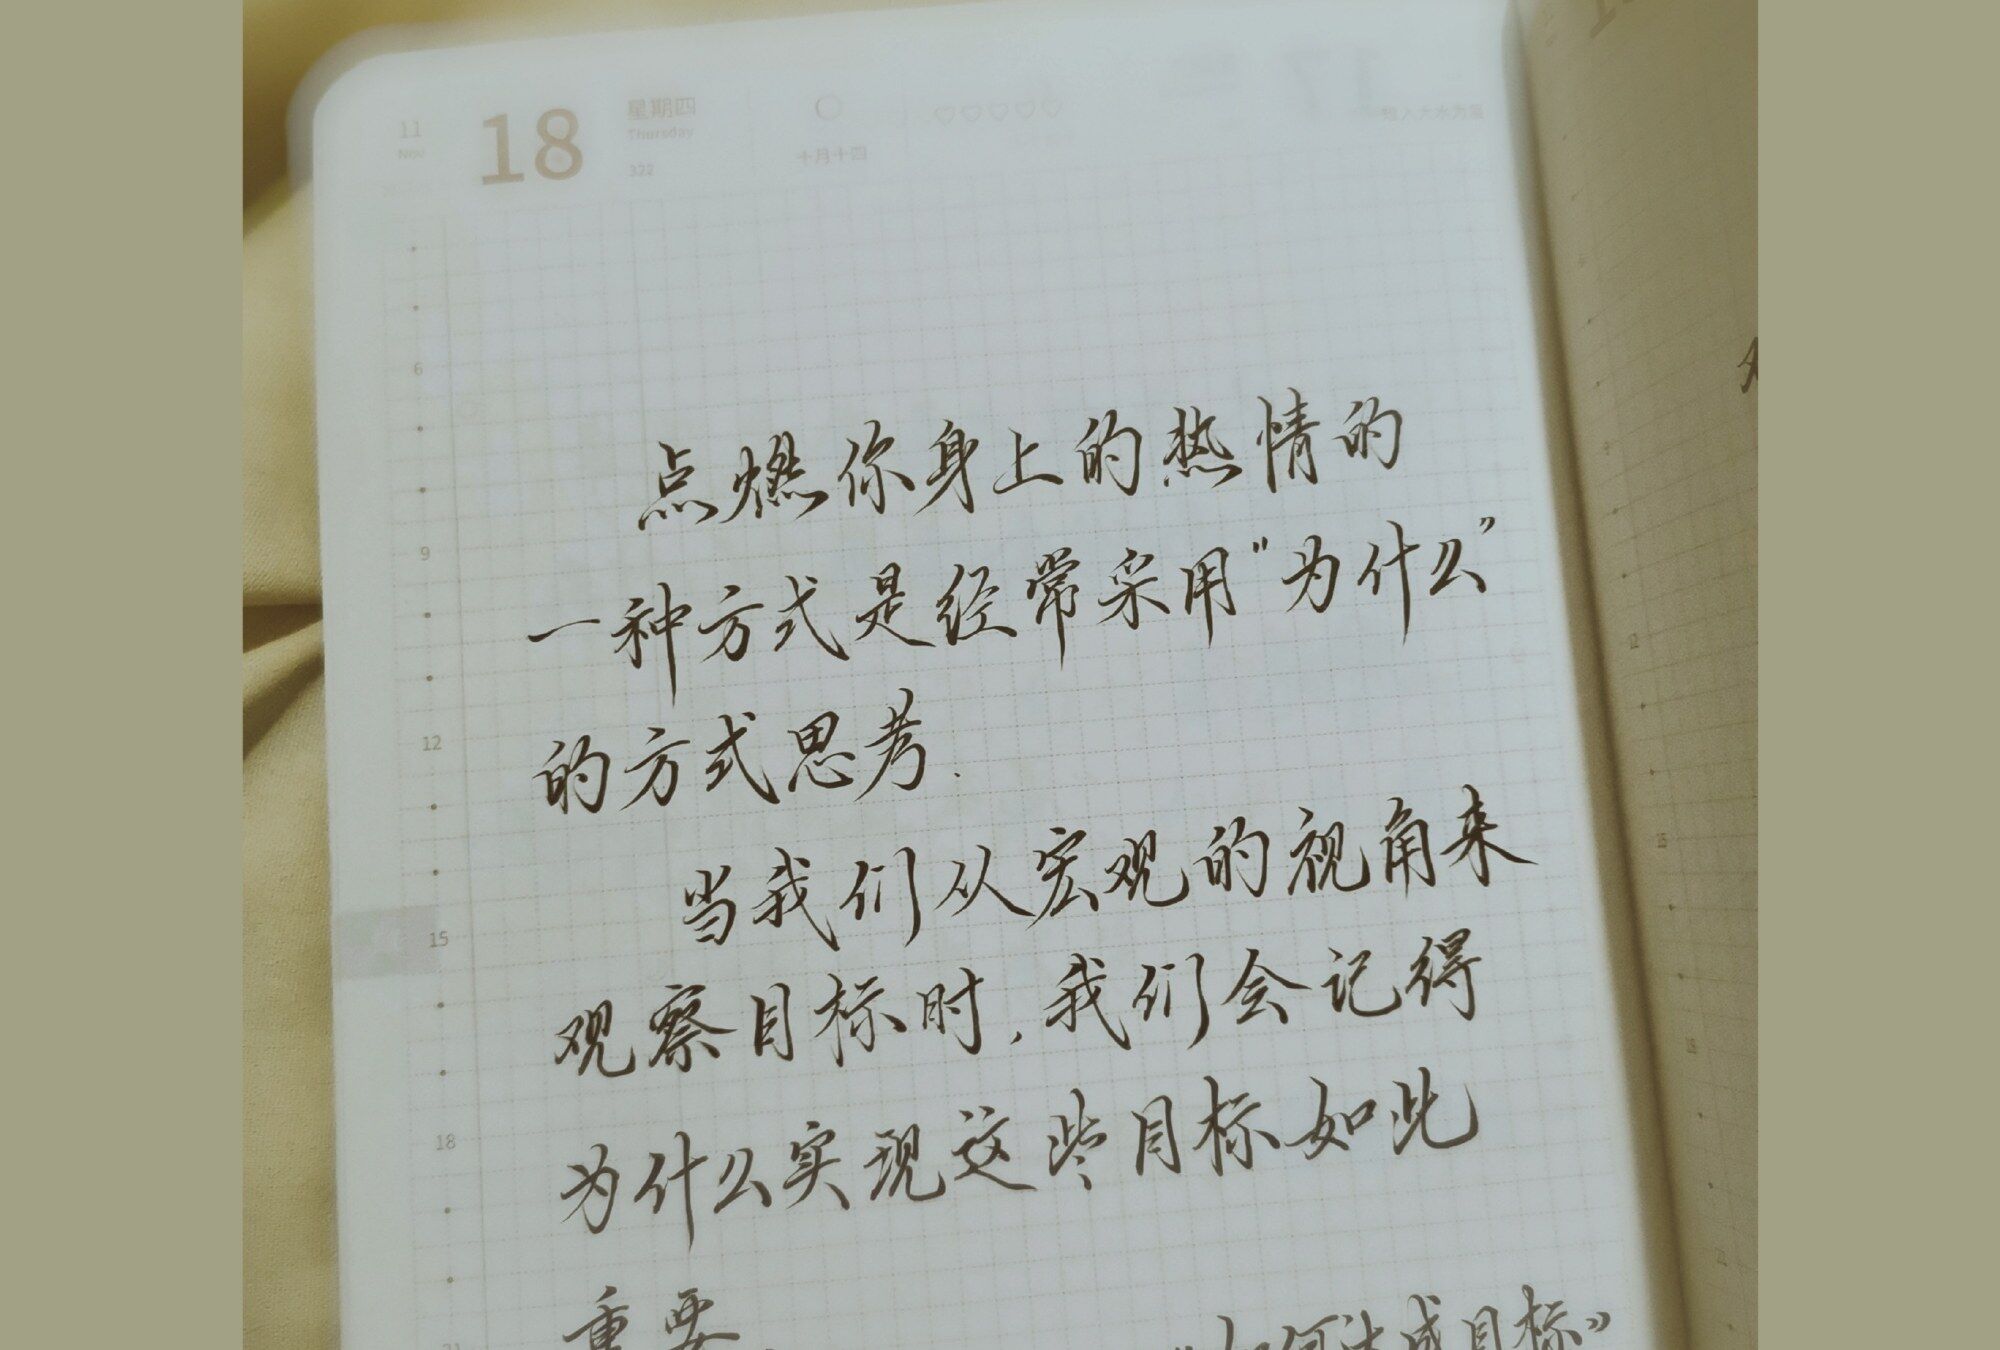 11
Nov
18
星期四
Thursday
322
十月十四
6
点燃你身上的热情的
9
一种方式是经常采用“为什么”
12
的方式思考.
当我们从宏观的视角来
15
观察目标时,我们会记得
18
为什么实现这些目标如此
重要
“如何达成目标”
21